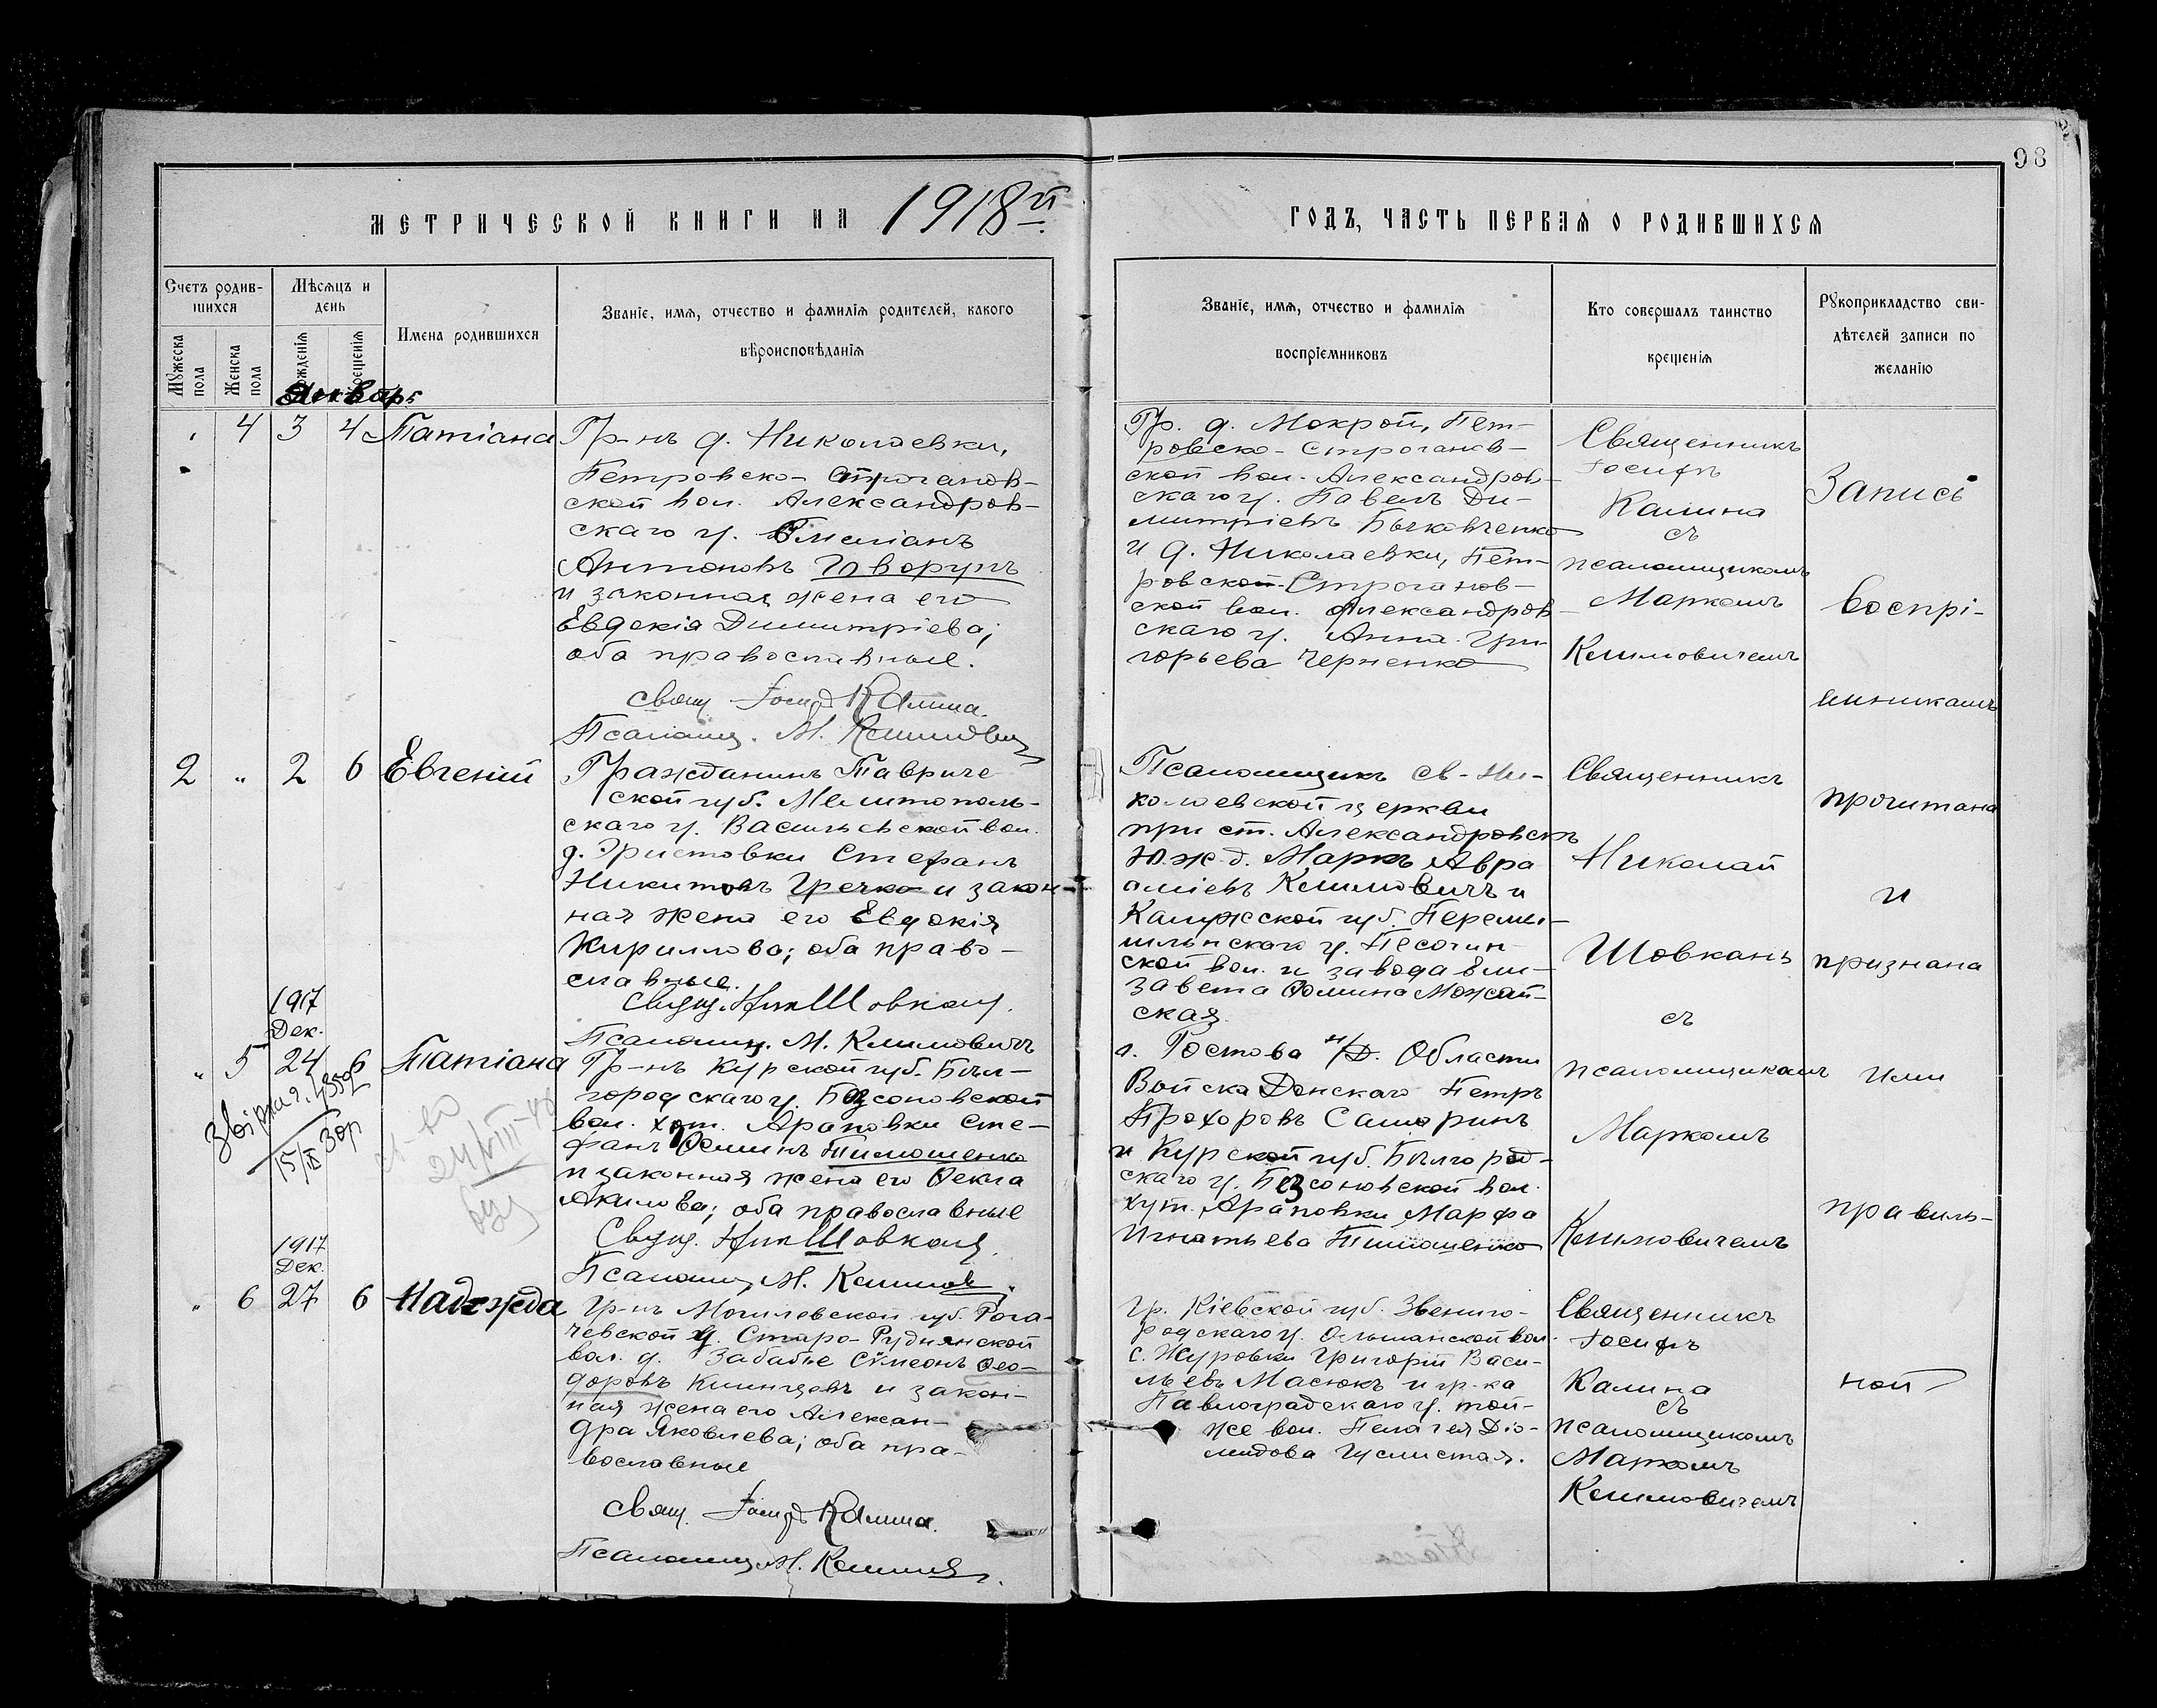 98
МЕТРИЧЕСКОЙ КНИГИ НА 1918й
ГОДЪ, ЧАСТЬ ПЕРВАЯ О РОДИВШИХСЯ
Счетъ родив-
шихся
Мѣсяцъ и
день
Имена родившихся
Званіе, имя, отчество и фамилія родителей, какого
вѣроисповѣданія
Мужеска
пола
Женска
пола
рожденія
крещенія
Званіе, имя, отчество и фамилія
воспріемниковъ
Кто совершалъ таинство
крещенія
Рукоприкладство сви-
дѣтелей записи по
желанію
Январь
" 4 3 4 Татіана
Гр-нъ д. Николаевки,
Петровско-Строганов-
ской вол. Александров-
скаго у. Емеліанъ
Антоновъ Говорунъ
и законная жена его
Евдокія Димитріева;
оба православные.
Свящ. Іосифъ Калина.
Псаломщ. М. Климовичъ
Гр. д. Мокрой, Пет-
ровско-Строганов-
ской вол. Александров-
скаго у. Павелъ Ди-
митріевъ Бычковченко
и д. Николаевки, Пет-
ровской-Строганов-
ской вол. Александров-
скаго у. Анна Гри-
горьева Черненко
Священникъ
Іосифъ
Калина
съ
псаломщикомъ
Маркомъ
Климовичемъ
2 " 2 6 Евгеній
Гражданинъ Тавриче
ской губ. Мелитополь-
скаго у. Васильевской вол.
д. Эристовки Стефанъ
Никитовъ Гречко и закон-
ная жена его Евдокія
Кириллова; оба право-
славные.
Свящ. Ник Шовкань.
Псаломщ. М. Климовичъ
Псаломщикъ Св-Ни-
колаевской церкви
при ст. Александровскъ
Ю. ж. д. Маркъ Авра
аміевъ Климовичъ и
Калужской губ. Перемы-
шльскаго у. Песочин-
ской вол. и завода Ели-
завета Фомина Можай-
ская.
Священникъ
Николай
Шовкань
съ
псаломщикомъ
Маркомъ
Климовичемъ
1917
Дек.
" 5 24 6 Татіана
15/IX
Гр-нъ Курской губ. Бѣл-
городскаго у. Безсоновской
вол. хут. Араповки Сте-
фанъ Фоминъ Тимошенко
и законная жена его Фекла
Акилова; оба православные
Свящ. Ник Шовкань.
Псаломщ. М. Климов
г. Ростова н/Д. Области
Войска Донскаго Петръ
Прохоровъ Самаринъ
и Курской губ. Бѣлгород-
скаго у. Безсоновской вол.
хут. Араповки Марфа
Игнатьева Тимошенко
1917
Дек.
" 6 27 6 Надежда
Гр-нъ Могилевской губ. Рога-
чевской у. Старо-Руднянской
вол. д. Забабье Сѵмеонъ Фео-
доровъ Климцевъ и закон-
ная жена его Алексан-
дра Яковлева; оба пра-
вославные
Свящ. Іосифъ Калина.
Псаломщ. М. Климов.
Гр. Кіевской губ. Звениго-
родскаго у. Ольшанской вол.
с. Журовки Григорій Васи-
льевъ Масюкъ и гр-ка
Павлоградскаго у. той-
же вол. Пелагея Діо-
мидова Гуслистая.
Священникъ
Іосифъ
Калина
съ
псаломщикомъ
Маркомъ
Климовичемъ
Запись
воспрі-
емникамъ
прочитана
и
признана
ими
правиль-
ной